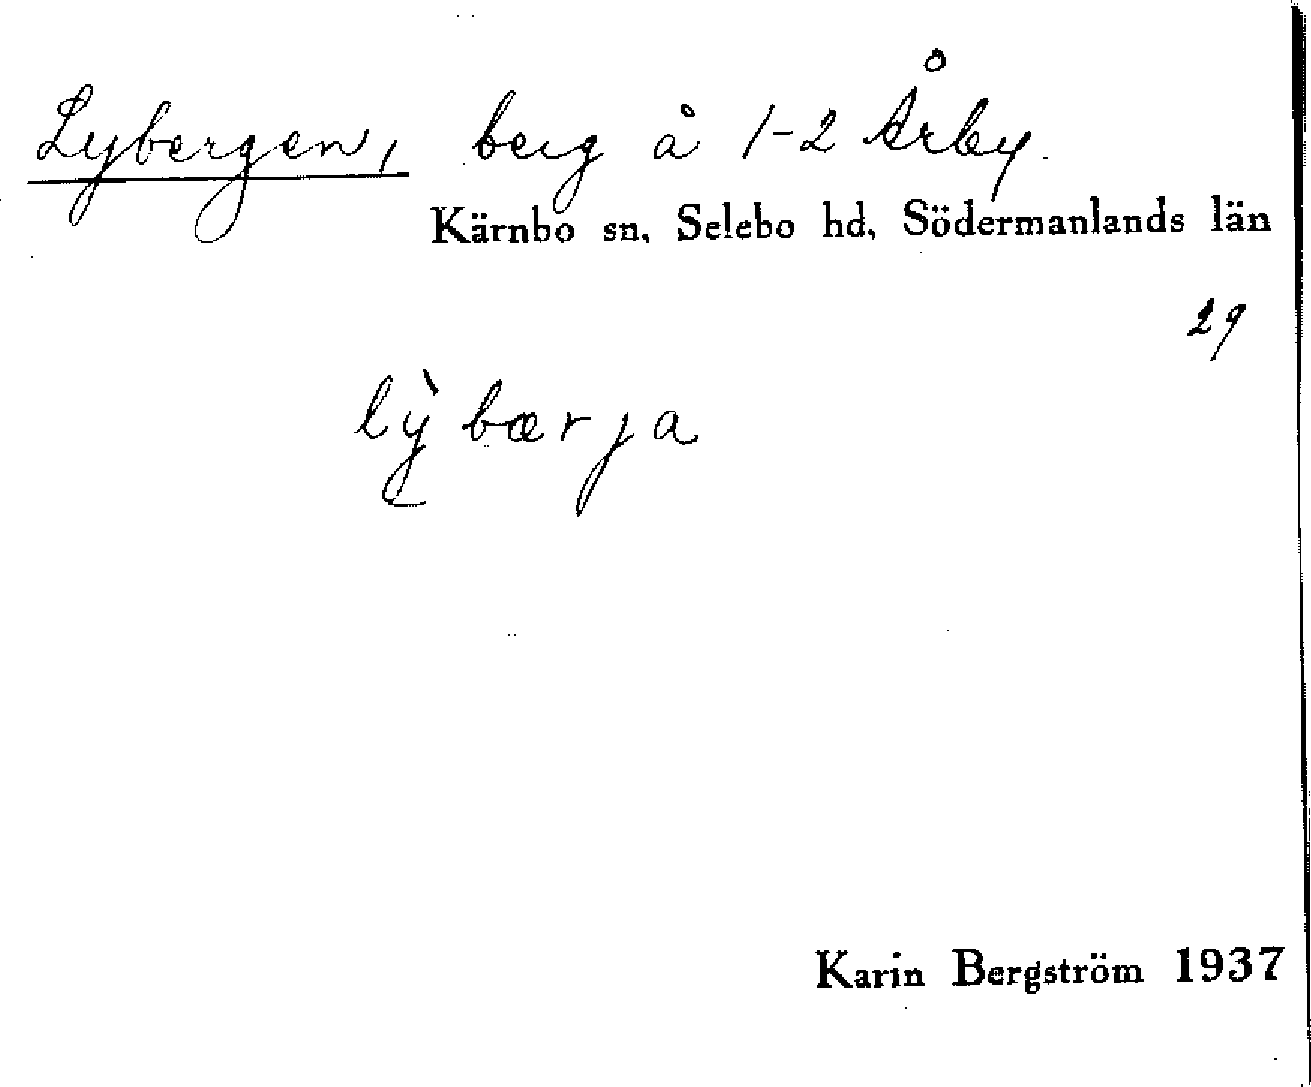 Lybergen, berg å 1-2 Årby.
Kärnbo sn, Selebo hd, Södermanlands län
29
lỳbærja
Karin Bergström 1937